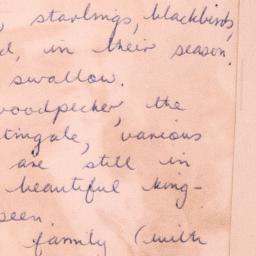 , starlings, blackbirds,
d, in their season.
swallow.
woodpecker, the
tingale, various
are still in
beautiful king-
seen
family (with